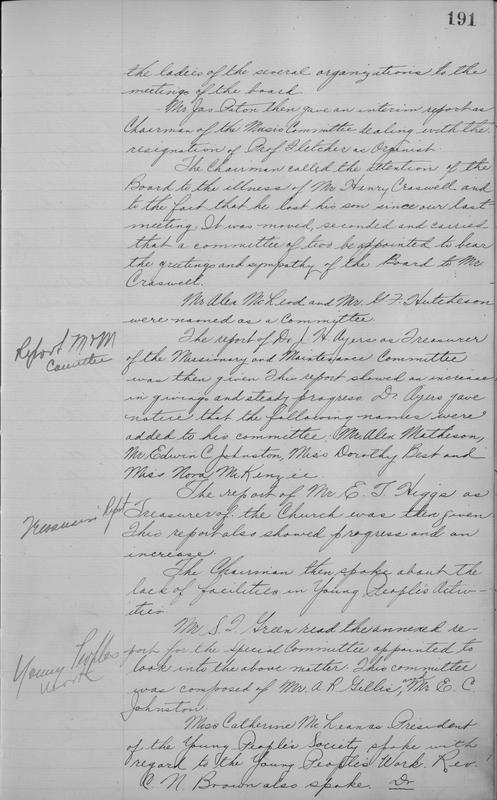 191
the ladies of the several organizations to the
meetings of the board
Mr Jas Paton then gave an interim report as
Chairman of the Music Committee dealing with the
resignation of Prof Fletcher as Organist.
The Chairman called the attention of the
Board to the illness of Mr Henry Craswell and
to the fact that he lost his son since our last
meeting. It was moved, seconded and carried
that a committee of two be appointed to bear
the greetings and sympathy of the Board to Mr.
Craswell.
Mr Alex McLeod and Mr. G F. Hutcheson
were named as a Committee
Report M & M
Committee
The report of Dr J. H Ayers as Treasurer
of the Missionary and Maintenance Committee
was then given This report showed an increase
in givings and steady progress Dr. Ayers gave
notice that the following names were
added to his committee: Mr Alex Matheson,
Mr. Edwin C. Johnston, Miss Dorothy Best and
Miss Nora McKenzie
Treasurers Rept
The report of Mr. E. T. Higgs as
Treasurer of the Church was then given
This report also showed progress and an
increase.
The Chairman then spoke about the
lack of facilities in Young People's Activi-
ties
Young Peoples
Work
Mr S. T. Green read the annexed re-
port for the special Committee appointed to
look into the above matter. This committee
was composed of Mr. A. R Gillis, Mr E. C
Johnston
Miss Catherine McLean as President
of the Young People's Society spoke with
regard to the Young People's Work. Rev.
C. N. Brown also spoke. Dr